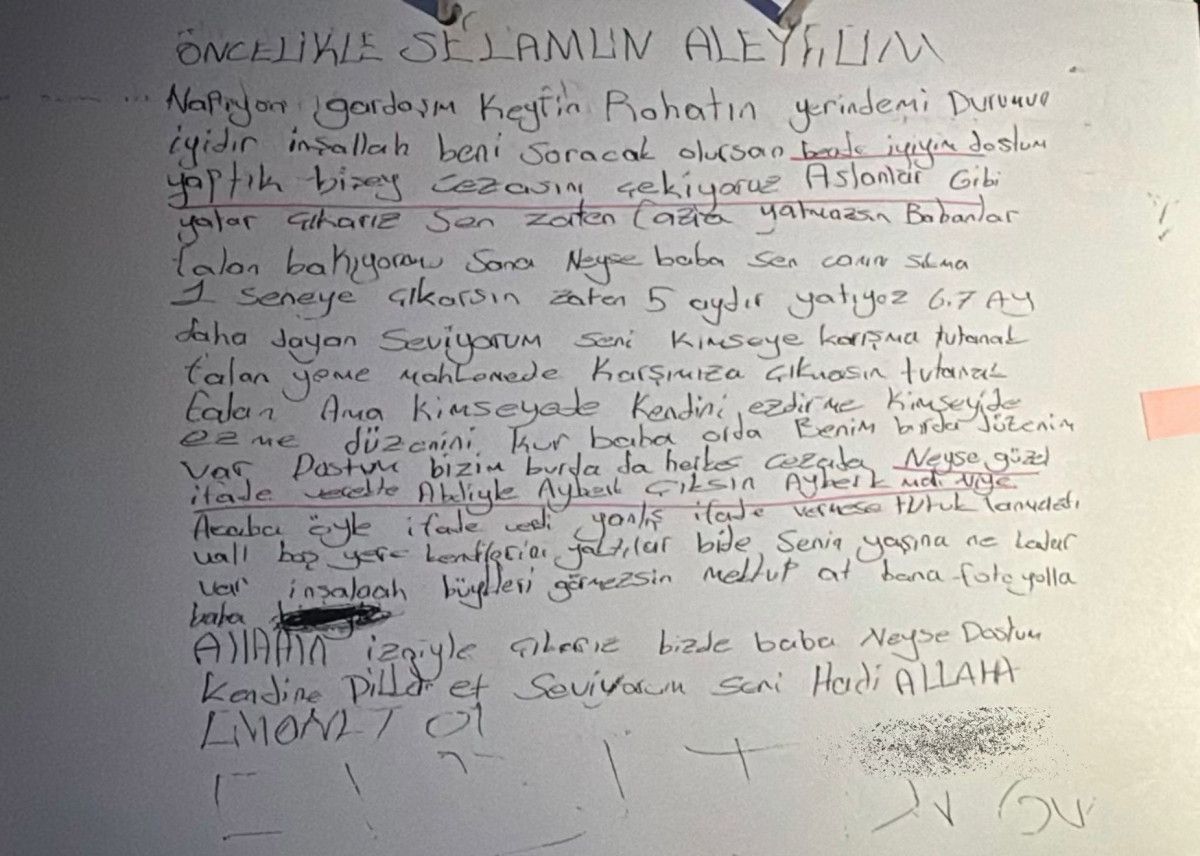 ÖNCELİKLE SELAMUN ALEYHUM
Napıyon gardaşım Keyfin Rahatın yerindemi Durumun
iyidir inşallah beni soracak olursan bende iyiyim dostum
yaptık bişey cezasını çekiyoruz Aslanlar Gibi
yatar çıkarız sen zaten fazla yatmazsın Babanlar
falan bakıyorum sana Neyse baba sen canın sıkma
1 seneye çıkarsın zaten 5 aydır yatıyoz 6.7 AY
daha dayan Seviyorum seni Kimseye karışma tutanak
falan yeme mahkemede Karşımıza çıkmasın tutanak
falan Ama kimseyede Kendini ezdirme Kimseyide
ezme düzenini kur baba orda Benim burda düzenim
var Dostum bizim burda da herkes cezada Neyse güzel
ifade verdide Abdiyle Ayberk çıksın Ayberk niye
Acaba öyle ifade verdi yanlış ifade vermese tutuklanmazdı
vall boş yere kendilerini yaktılar bide Senin yaşına ne kadar
var inşalaah büyükleri görmezsin mektup at bana foto yolla
baba
ALLAHIN izniyle çıkarız bizde baba Neyse Dostum
Kendine Dikkat et Seviyorum seni Hadi ALLAHA
EMANET Ol